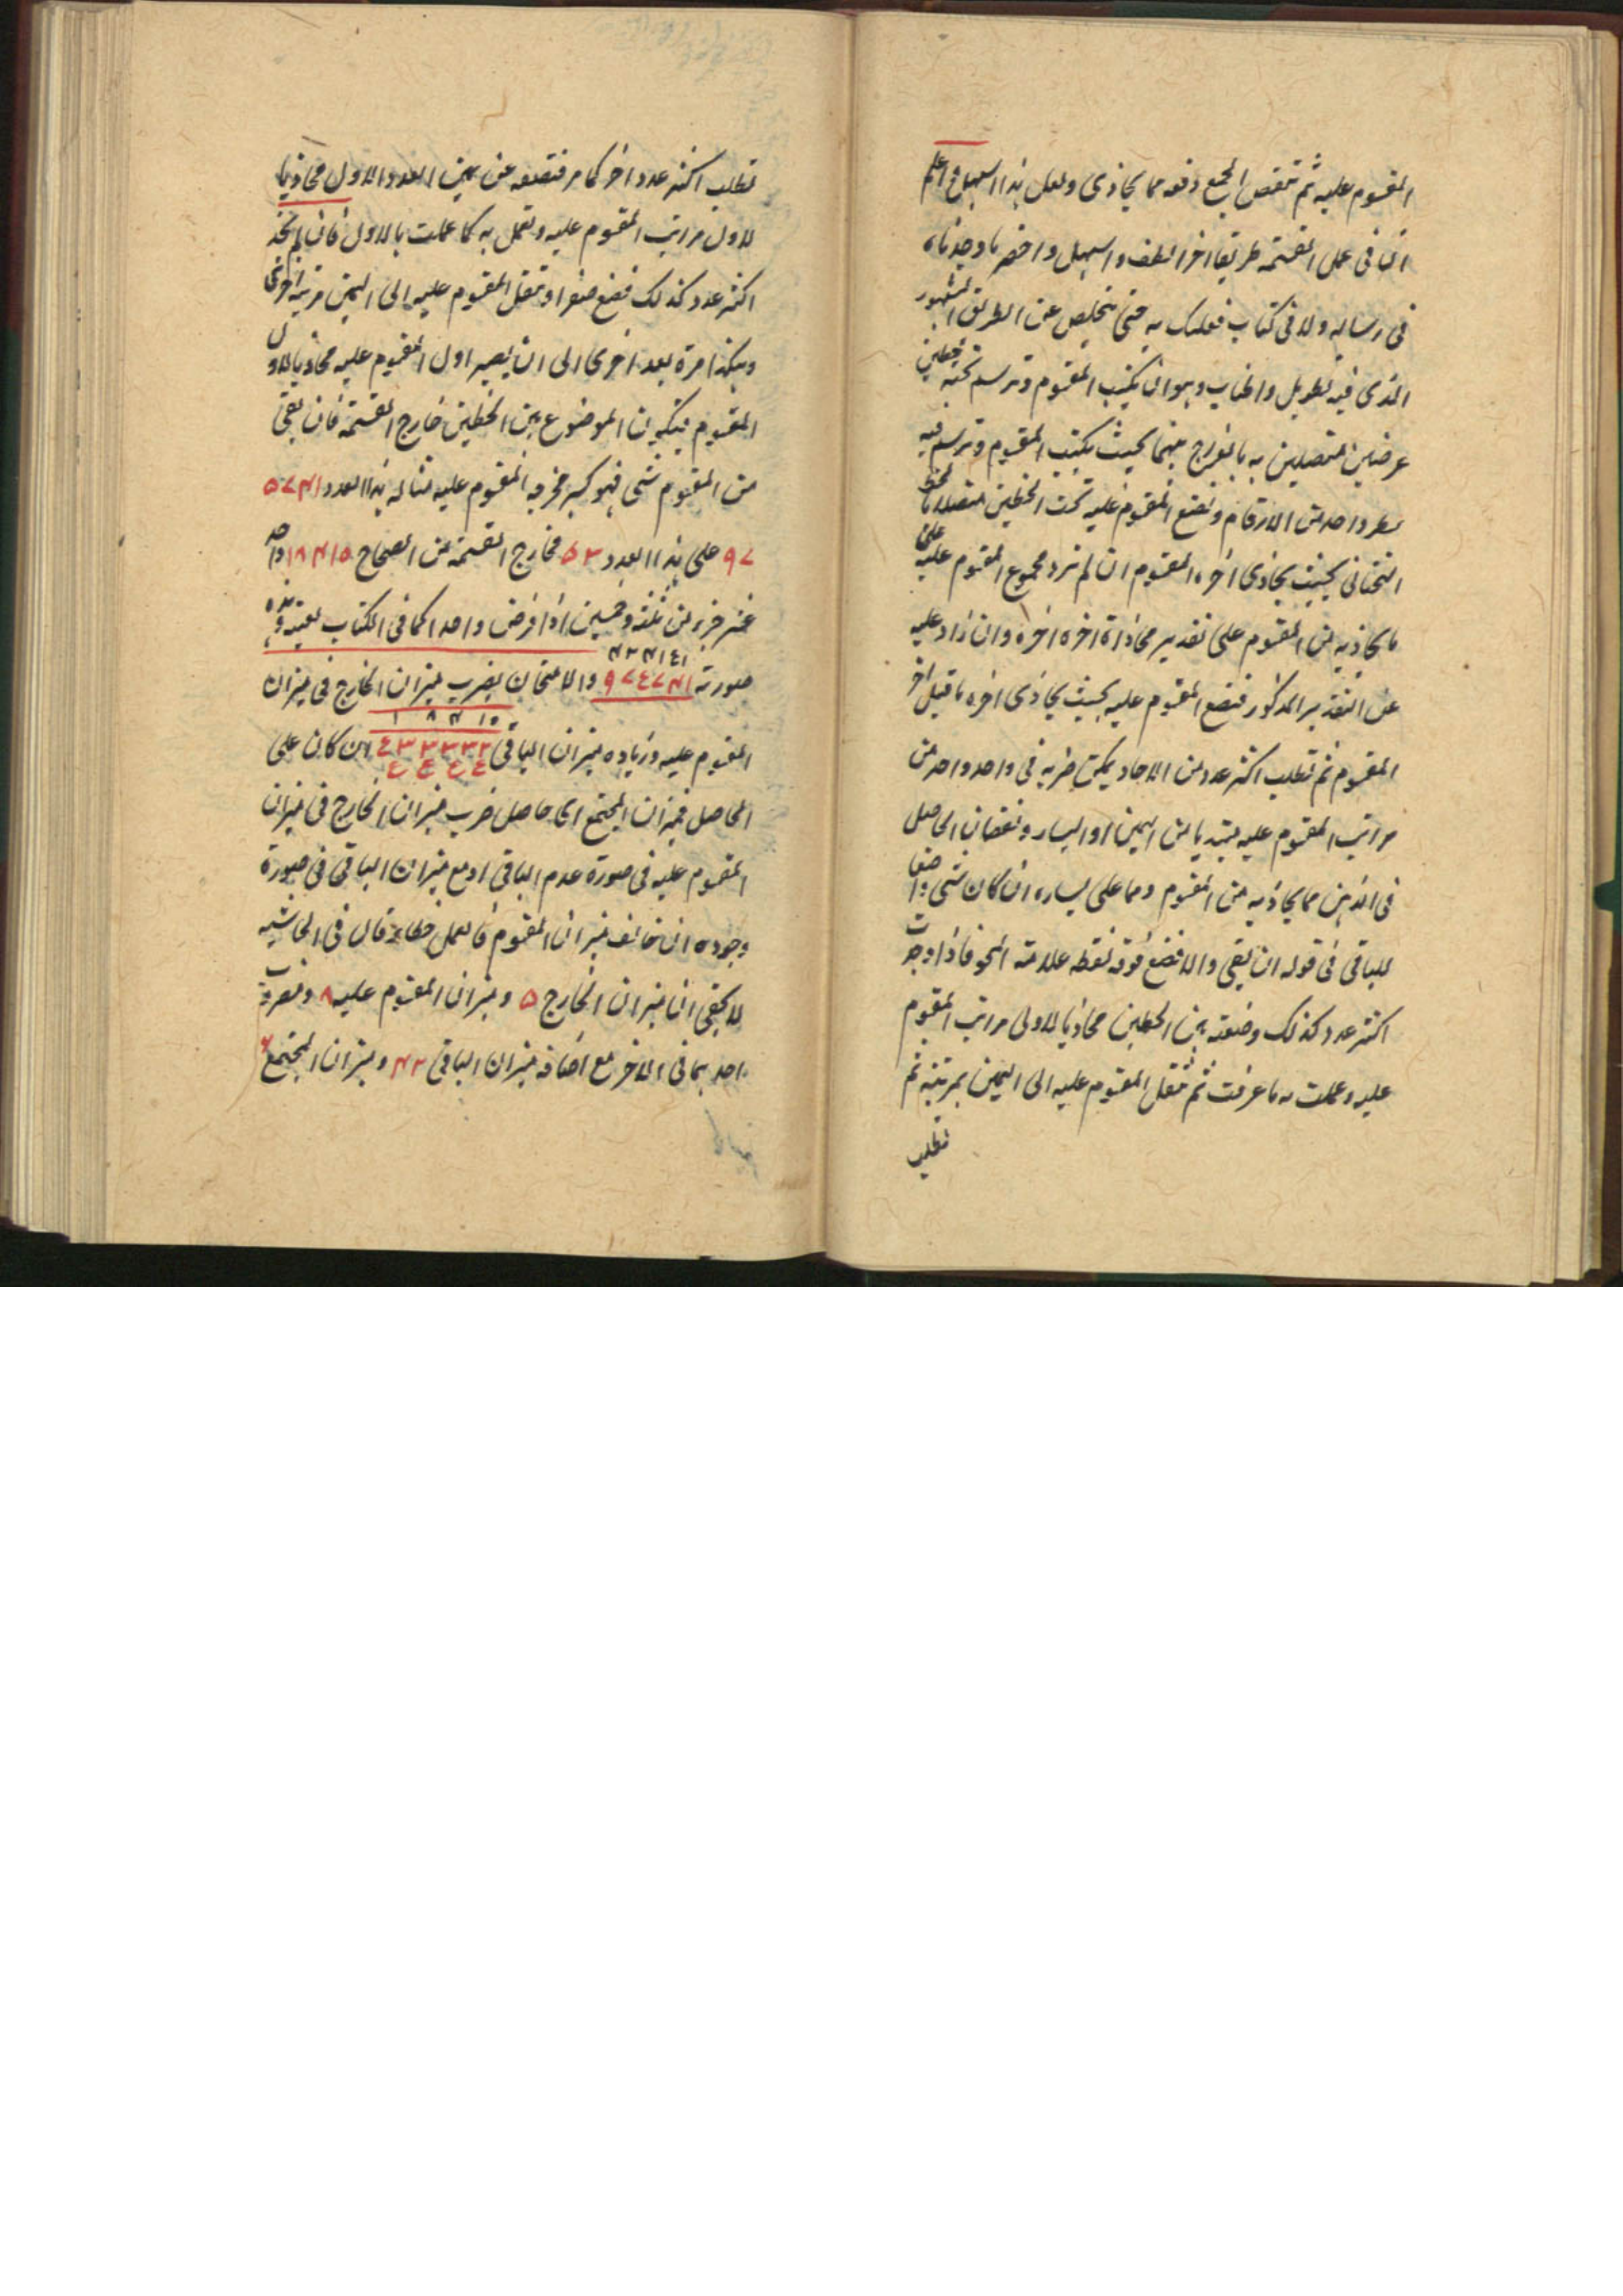 المقسوم عليه ثم تنقص المجتمع دفعه مما يحاذى ولعل هذا اسهل واعلم
ان لنا فى عمل القسمة طريقا اخر الطف واسهل واخصر ما وجدناه
فى رسالة ولا فى كتاب فعليك به حتى تتخلص عن الطريق المشهور
الذى فيه تطويل واطناب وهو ان تكتب المقسوم وترسم تحته خطين
عرضيين متصلين به بالفرج بينهما بحيث يكتب المقسوم وترسم فيه
سطر واحد من الارقام وتضع المقسوم عليه تحت الخطين متصلا بالخط
التحتانى بحيث يحاذى اخره المقسوم ان لم يزد مجموع المقسوم عليه على
ما يحاذيه من المقسوم على تقدير محاذاة اخره اخره وان زاد عليه
على التقدير المذكور فتضع المقسوم عليه بحيث يحاذى اخره ما قبل اخر
المقسوم ثم تطلب اكثر عدد من الاحاد يمكن ضربه فى واحد واحد من
مراتب المقسوم عليه مبتديا من اليمين او اليسار ونقصان الحاصل
فى الذهن مما يحاذيه من المقسوم ومما على يساره ان كان شئ واضعا
للباقى فى قوله ان بقى والا فتضع فوقه نقطه علامة المحو فاذا وجدت
اكثر عدد كذلك وضعته بين الخطين محاذيا لاولى مراتب المقسوم
عليه وعملت به ما عرفت ثم تنقل المقسوم عليه الى اليمين بمرتبة ثم
تطلب
تطلب اكثر عدد اخر كما مر فتضعه عن يمين العدد الاول محاذيا
لاول مراتب المقسوم عليه وتعمل به كما عملت بالاول فان لم تجد
اكثر عدد كذلك فضع صفرا وتنقل المقسوم عليه الى اليمين مرتبة اخرى
وهكذا مرة بعد اخرى الى ان يصير اول المقسوم عليه محاذيا لاول
المقسوم فيكون الموضوع بين الخطين خارج القسمة فان بقى
من المقسوم شئ فهو كسر مخرجه المقسوم عليه مثاله هذا العدد ٩٧٥٧٤١
٩٧ على هذا العدد ٥٣ فخارج القسمة من الصحاح ١٨٤١٥ واحد
عشر جزء من ثلثة وخمسين اذا فرض واحدا كما فى الكتاب بعينه وهذه
صورته ٩٧٤٧٤١ والامتحان بضرب ميزان الخارج فى ميزان
المقسوم عليه وزيادة ميزان الباقى ان كان على
الحاصل فميزان المجتمع اى حاصل ضرب ميزان الخارج فى ميزان
المقسوم عليه فى صورة عدم الباقى او مع ميزان الباقى فى صورة
وجوده ان خالف ميزان المقسوم فالعمل خطاء قال فى الحاشيه
لا يخفى ان ميزان الخارج ٥ وميزان المقسوم عليه ٨ ومضروب
احدهما فى الاخر مع اضافة ميزان الباقى ٤٢ وميزان المجتمع ٦